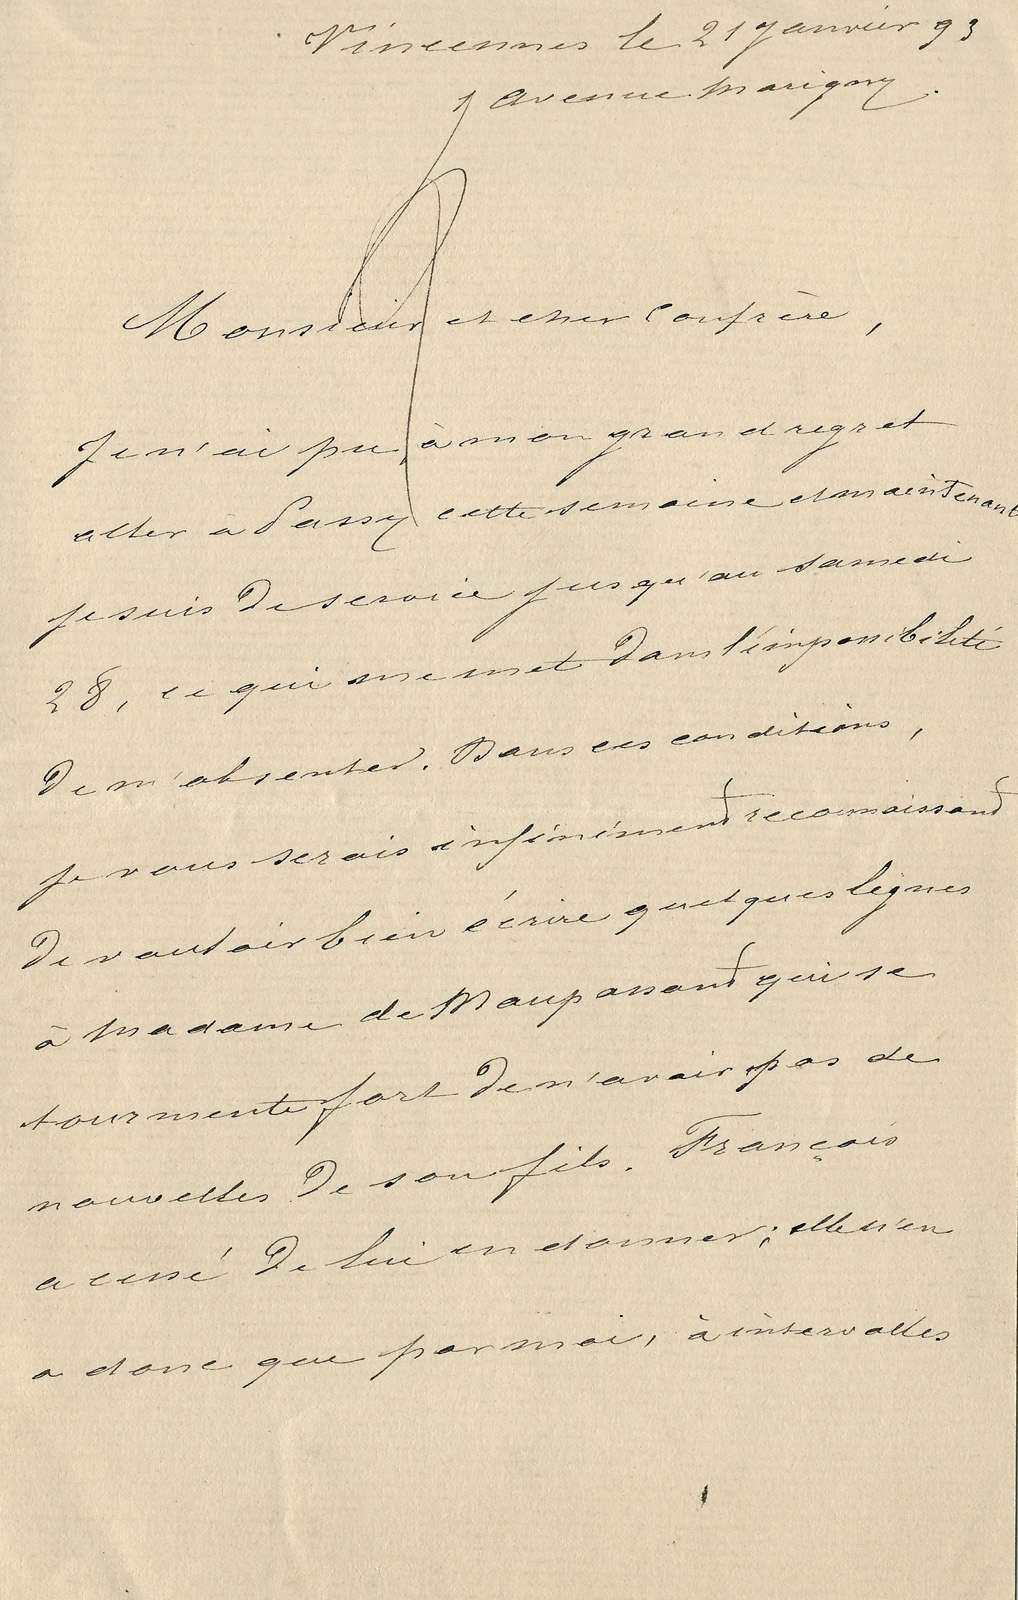 Vincennes le 21 Janvier 93
1 Avenue Marigny.
Monsieur et cher Confrère,
Je n'ai pu, à mon grand regret
aller à Passy cette semaine et maintenant
je suis de service jusqu'au samedi
28, ce qui me met dans l'impossibilité
de m'absenter. Dans ces conditions,
je vous serais infiniment reconnaissant
de vouloir bien écrire quelques lignes
à Madame de Maupassant qui se
tourmente fort de n'avoir pas de
nouvelles de son fils. François
a cessé de lui en donner; elle n'en
a donc que par moi, à intervalles